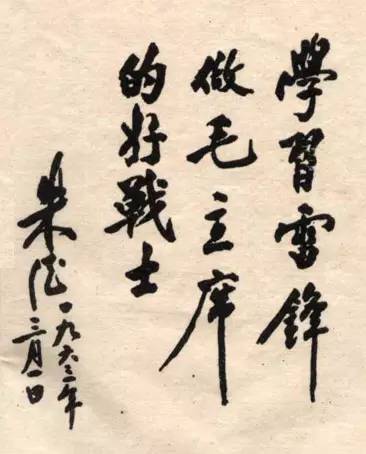 學習雷鋒
做毛主席
的好戰士
朱德
一九六三年
二月一日